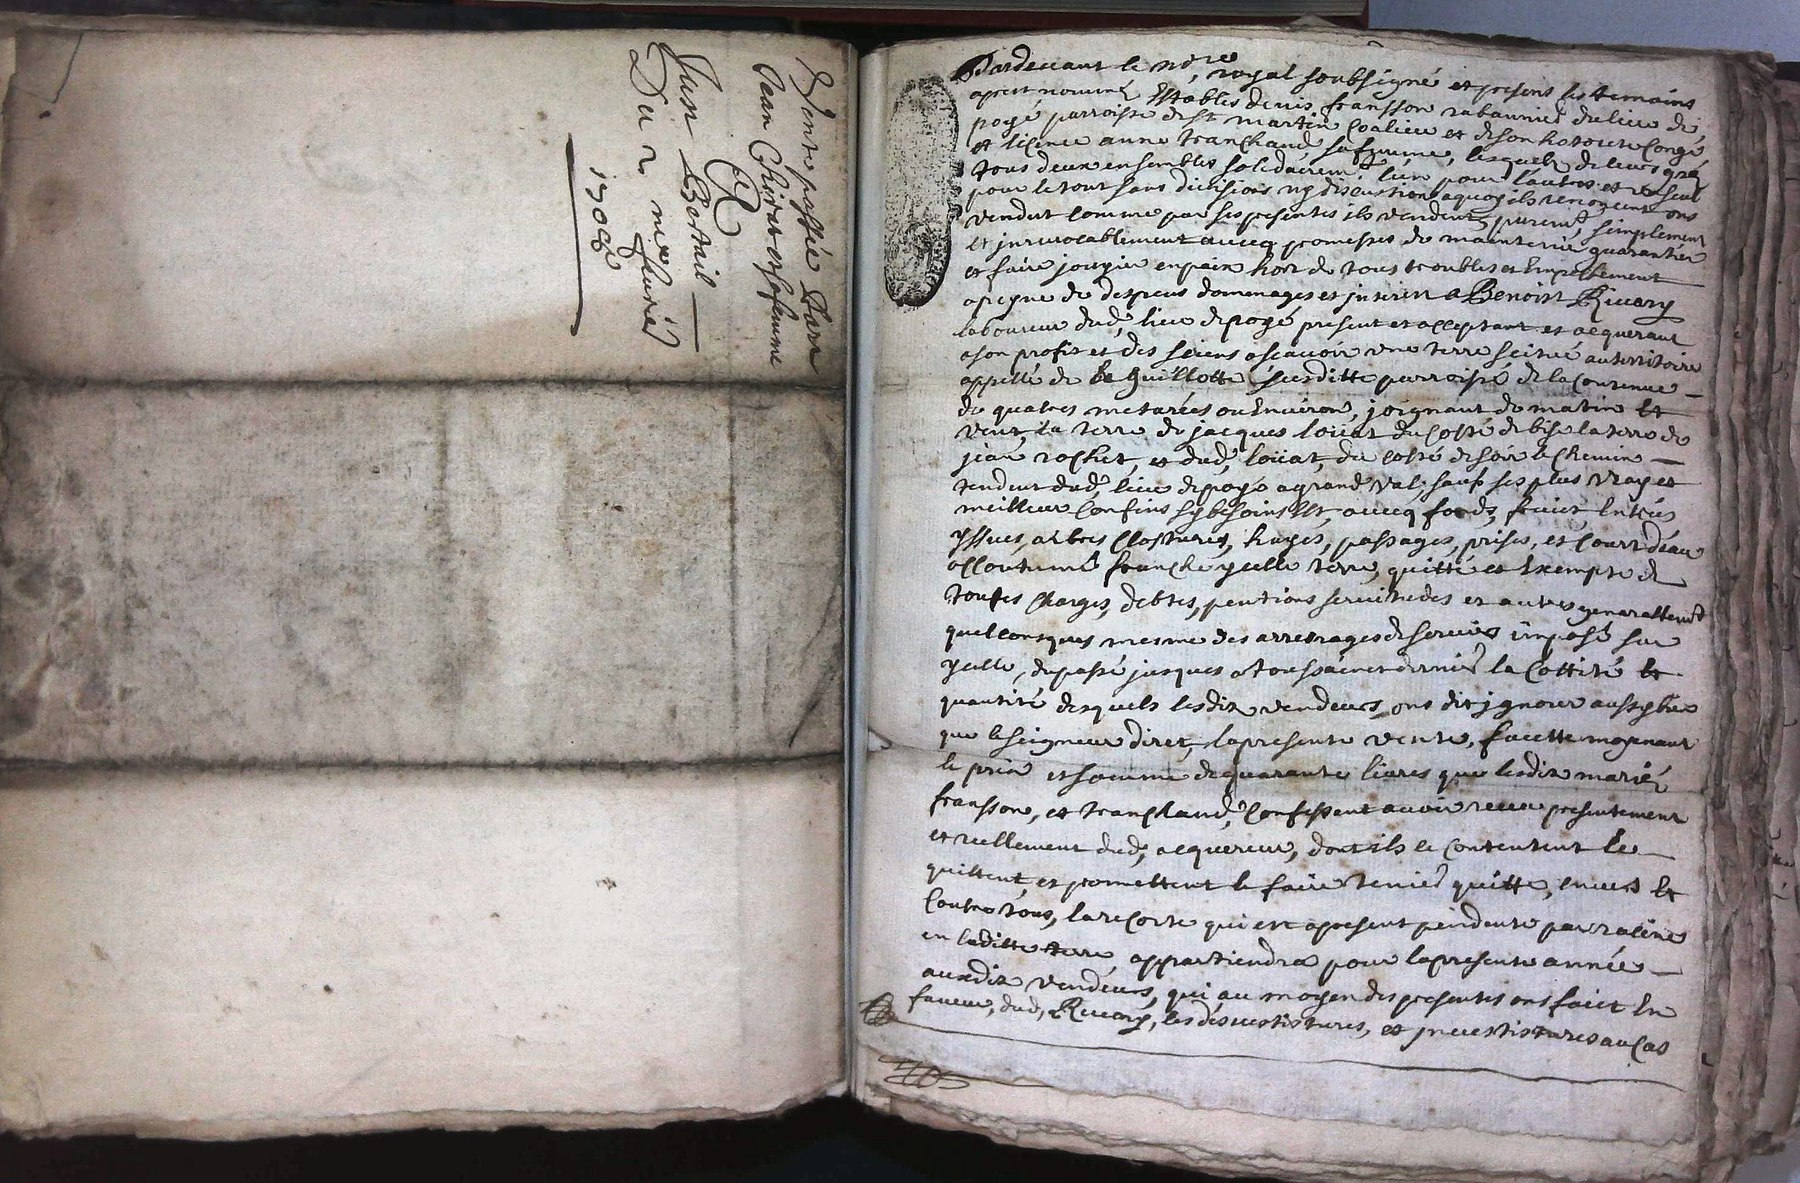 Vente passée Par
Jean Chirat et sa femme
A
Just Bertail
Du 2 me juin
1708
Pardevant le no.re royal soubsigné et presens les temoins
apres nommé Establis denis fransson rabannier du lieu de
pogé parroisse de St martin Coalieu et de son hotorite Congé
et licence anne tranchand sa femme, lesquels de leurs gré
tous deux ensembles solidairem.t l'un pour l'autre et un seul
pour le tout sans divisions ny discustion aquoy ils renoncent ons
vendut comme par ses presentes ils vendent purem.t simplement
Et jrrevocablement avecq promesses de maintenir guarantir
et faire jouyir en paix hors de tous troubles et Empessement
a peyne de despens domenages et jnterest a Benoist Rivory
laboureur dud. lieu de pogé present et acceptant et acquerant
a son profit et des siens a scavoir une terre scituée au territoire
appellé de la Guillotte susditte parroisse de la Contenue
de quatres metarées ou Environ, joignant de matin Et
vent la terre de jacques loüat du Costé de bise la terre de
jean rochet, et dud. loüat, du costé de soir le Chemin
tendent dud. lieu de pogé a grand val, sauf ses plus vrays et
meilleur Confins sy besoins Est, avecq fonds, fruict Entrées
yssues, arbres Clostures, hayes, passages, prises, et Court d'eau
accoutumé franche ycelle terre, quitte et Exempte de
toutes charges, debtes, pentions servitudes et autres generallem.t
quelconsques mesme des arrerages de servis imposé sur
ycelle, du passé jusques a toussainct dernier la Cottité Et
quantité desquels lesdits vendeurs ons dit jgnorer aussy bien
que le seigneur diret, la presente vente, faicte moyenant
le prix et somme de quarante livres que lesdits mariés
fransson, et tranchand, Confessent avoir receu presentement
et reellement dud. acquereur, dont ils se Contentent le
quittent, et promettent le faire tenir quitte, envers Et
Contre tous, la recorte qui est apresent pendente par racine
en laditte terre appartiendra pour la presente année
auxdits vendeurs, qui au moyen des presentes ons faict En
faveur, dud. Rivory, les desvestistures, et jnvestistures au Cas